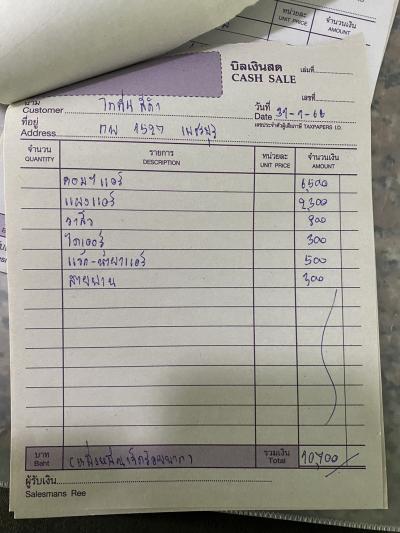 หน่วยละ จำนวนเงิน
UNIT PRICE AMOUNT
บิลเงินสด เล่มที่
CASH SALE
เลขที่
นาม
Customer
วันที่
Date 31-1-66
ที่อยู่
Address 1597 เพชรบุรี
เลขประจำตัวผู้เสียภาษี TAXPAPERS I.D.
จำนวน รายการ หน่วยละ จำนวนเงิน
QUANTITY DESCRIPTION UNIT PRICE AMOUNT
คอมฯแอร์ 6,500
แผงแอร์ 2,300
วาล์ว 800
ไดเออร์ 300
แว๊ค-น้ำยาแอร์ 500
สายพาน 300
บาท (หนึ่งหมื่นเจ็ดร้อยบาท) รวมเงิน
Baht Total 10,700
ผู้รับเงิน
Salesmans Ree